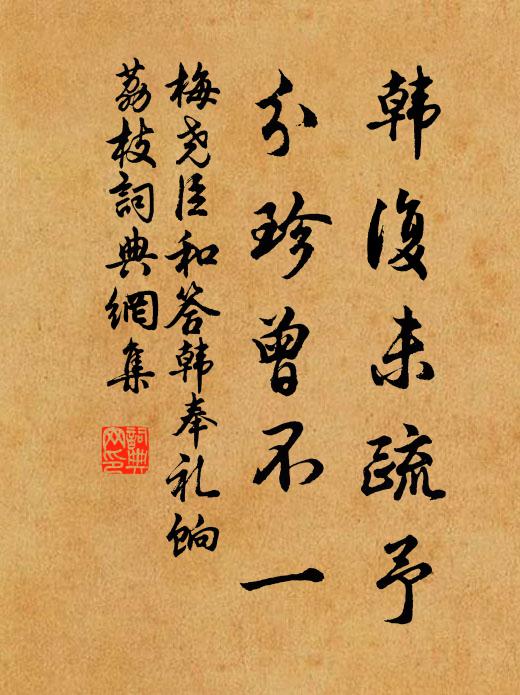 韩復未疏予
分珍曾不一
梅尧臣和答韩奉礼饷
荔枝詞典網集
詞典网印